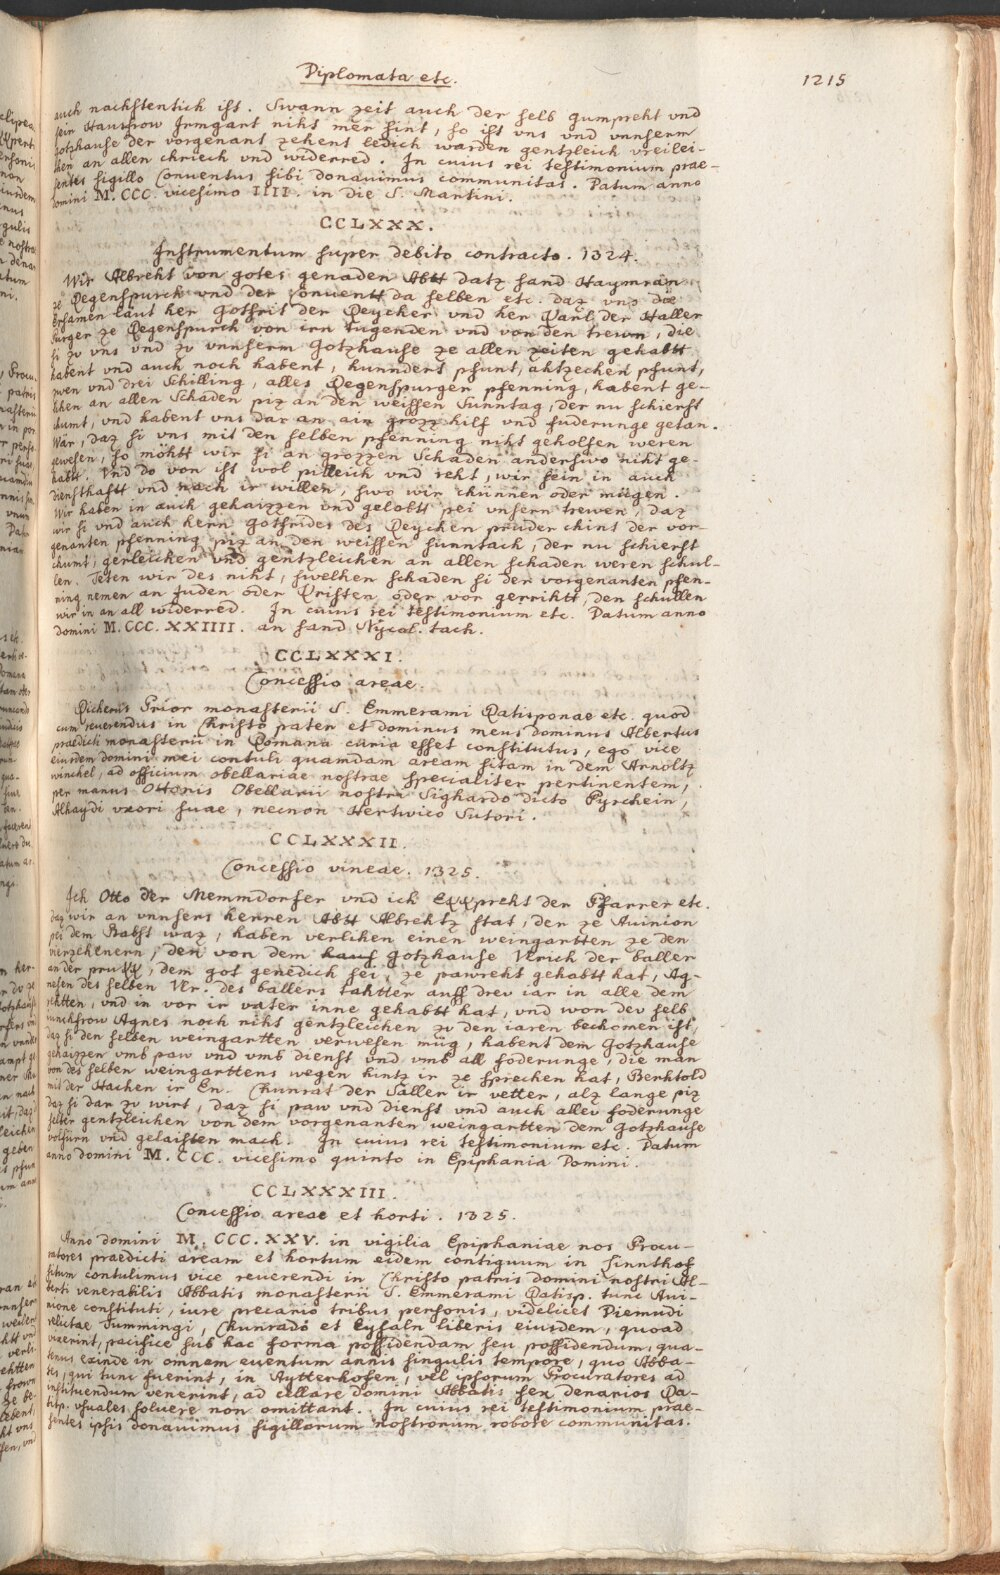 Diplomata etc. 1215
auch nachstentich ist. Swann zeit auch der selb Gumpreht vnd
sein Hausfrow Irmgart nihs mer sint, so ist vns vnd vnnserm
Gotzhause der vorgenant zehent ledich warden gentzleich vreilei-
chen an allen chriech vnd widerred. In cuius rei testimonium prae-
sentes sigillo Conuentus sibi donauimus communitas. Datum anno
Domini M. CCC. vicesimo IIII. in die S. Martini.
CCLXXX.
Instrumentum super debito contracto. 1324.
Wir Albreht von gotes genaden Abtt datz sand Haymran
ze Regenspurch vnd der Conuentt da selben etc. daz vns die
Ersamen laut her Gotfrit der Reycher vnd her Karl der Haller
Purger ze Regenspurch von irn tugenden vnd von den trewn, die
si zv vns vnd zv vnnserm Gotzhause ze allen zeiten gehabtt
habent vnd auch noch habent, hunndert phunt, ahtzechen phunt,
zwen vnd drei Schilling, alles Regenspurger pfenning, habent ge-
lihen an allen Schaden piz an den weissen Sunntag, der nu schierst
chumt, vnd habent vns dar an ain grozz hilf vnd fuderunge getan.
Wär, daz si vns mit den selben pfenning niht geholfen weren
gewesen, so möhtt wir si an grozzen Schaden anderswo niht ge-
habtt. Vnd do von ist wol pilleich vnd reht, wir sein in auch
diensthaftt vnd nach ir willen, swo wir chunnen oder mügen.
Wir haben in auch gehaizzen vnd gelobtt pei vnsern trewen, daz
wir si vnd auch hern Gotfrides des Reychen pruder chint der vor-
genanten pfenning piz an den weissen sunntach, der nu schierst
chumt, gerleichen vnd gentzleichen an allen schaden weren schul-
len. Teten wir des niht, swelhen schaden si der vorgenanten pfen-
ning nemen an Juden oder Cristen oder vor gerrihtt, den schullen
wir in an all widerred. In cuius rei testimonium etc. Datum anno
Domini M. CCC. XXIIII. an sand Nycol. tach.
CCLXXXI.
Concessio areae.
Richerus Prior monasterii S. Emmerami Ratisponae etc. quod
cum reuerendus in Christo pater et dominus meus dominus Albertus
praedicti monasterii in Romana curia esset constitutus, ego vice
eiusdem domini mei contuli quamdam aream sitam in dem Arnoltz
winchel, ad officium obellariae nostrae specialiter pertinentem,
per manus Ottonis Obellarii nostri Sighardo dicto Pyrchein,
Alhaydi vxori suae, necnon Hertwico Sutori.
CCLXXXII.
Concessio vineae. 1325.
Ich Otto der Memmdorfer vnd ich Ekkpreht der Pfarrer etc.
daz wir an vnnsers herren Abtt Albrehtz stat, der ze Auinion
pei dem Pabst waz, haben verlihen einen weingartten ze den
vierzehenern, den von dem Gotzhause Vlrich der Galler
an der prukk, dem got genedich sei, ze pawreht gehabtt hat, Ag-
nesen des selben Vlr. des Gallers tahtter auff drev iar in alle dem
rehtten, vnd in vor ir vater inne gehabtt hat, vnd won dev selb
iunchfrow Agnes noch niht gentzleichen zv den iaren bechomen ist,
daz si den selben weingartten verwesen müg, habent dem Gotzhause
gehaizzen vmb paw vnd vmb dienst vnd vmb all foderunge, die man
von des selben weingarttens wegen hintz ir ze sprechen hat, Berhtold
mit der Hachen ir En. Chunrat der Saller ir vetter, alz lange piz
daz si dar zv wirt, daz si paw vnd dienst vnd auch allev foderunge
selber gentzleichen von dem vorgenanten weingartten dem Gotzhause
volfürn vnd gelaisten mach. In cuius rei testimonium etc. Datum
anno domini M. CCC. vicesimo quinto in Epiphania Domini.
CCLXXXIII.
Concessio areae et horti. 1325.
Anno domini M. CCC. XXV. in vigilia Epiphaniae nos Procu-
ratores praedicti aream et hortum eidem contiguum in Sinnthof
situm contulimus vice reuerendi in Christo patris domini nostri Al-
berti venerabilis Abbatis monasterii S. Emmerami Ratisp. tunc Aui-
nione constituti, iure precario tribus personis, videlicet Diemudi
relictae Summingi, Chunrado et Eysaln liberis eiusdem, quoad
vixerint, pacifice sub hac forma possidendam seu possidendum, qua-
tenus exinde in omnem euentum annis singulis tempore, quo Abba-
tes, qui tunc fuerint, in Aytterhofen, vel ipsorum Procuratores ad
instituendum venerint, ad cellare domini Abbatis sex denarios Ra-
tisp. vsuales soluere non omittant. In cuius rei testimonium prae-
sentes ipsis donauimus sigillorum nostrorum robore communitas.